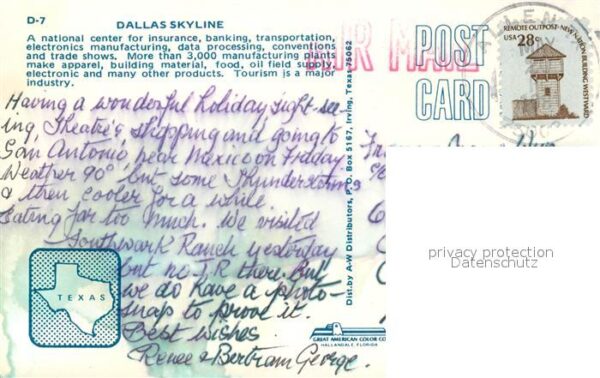 D-7
DALLAS SKYLINE
A national center for insurance, banking, transportation,
electronics manufacturing, data processing, conventions
and trade shows. More than 3,000 manufacturing plants
make apparel, building material, food, oil field supply,
electronic and many other products. Tourism is a major
industry.
Having a wonderful holiday sight-see
ing, Theatre's shopping and going to
San Antonio, near Mexico on Friday
Weather 90° but some Thunderstorms
& then cooler for a while
Eating far too much. We visited
Southwark Ranch yesterday
but no J.R there. But
we do have a photo-
snap to prove it.
Best wishes.
Renee & Bertram George.
TEXAS
Dist. by A-W Distributors, P.O. Box 5167, Irving, Texas 75062
AIR MAIL
POST
CARD
REMOTE OUTPOST·NEW NATION BUILDING WESTWARD
USA 28c
GREAT AMERICAN COLOR CO
HALLANDALE, FLORIDA
privacy protection
Datenschutz